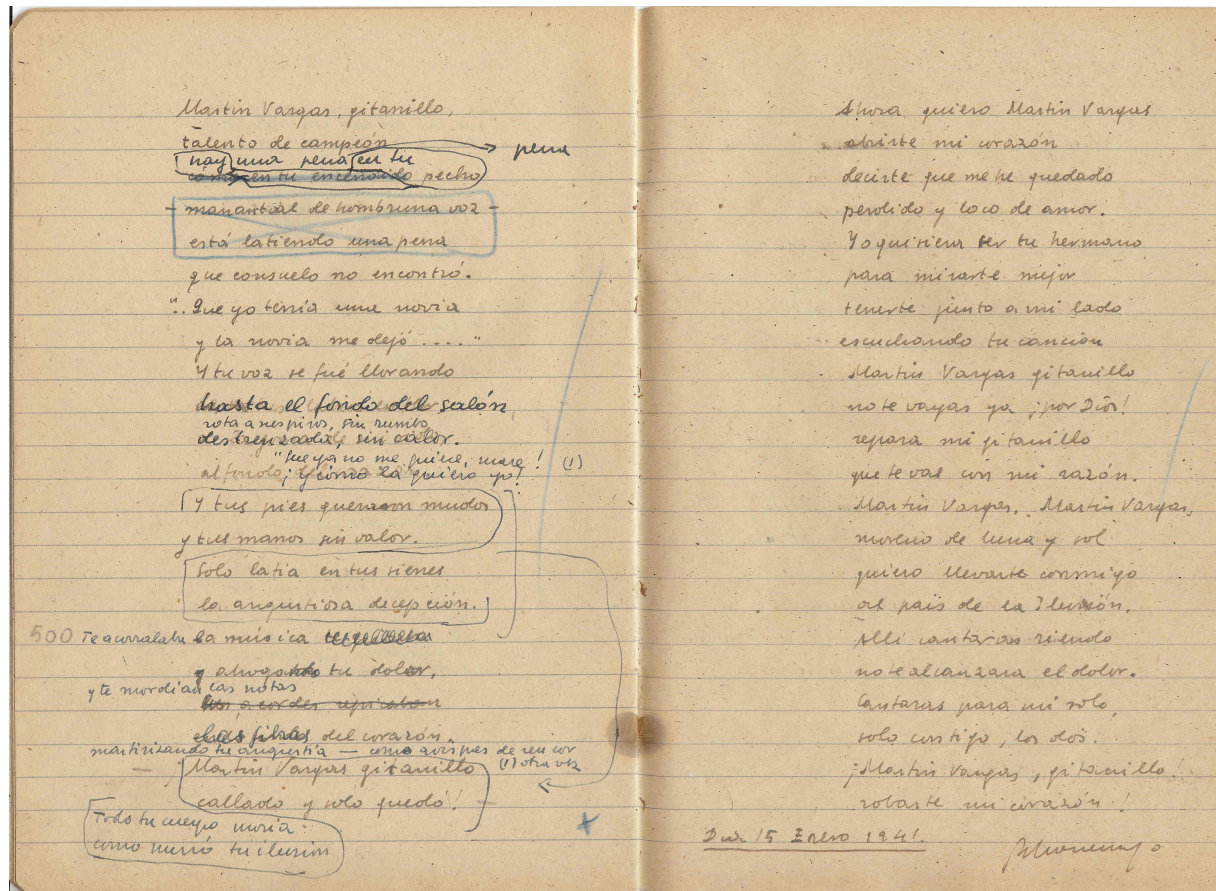 Martin Vargas, gitanillo,
talento de campeón
hay una pena en tu pena
como en tu encendido pecho
- manantial de hombruna voz -
está latiendo una pena
que consuelo no encontró.
".. Que yo tenía una novia
y la novia me dejó ...."
Y tu voz se fué llorando
hasta el fondo del salón,
rota a suspiros, sin rumbo
destrenzada, sin calor.
"Que ya no me quiere, mare!
¡Y cómo la quiero yo! (1)
al fondo
Y tus pies quedaron mudos
y tus manos sin valor.
Solo latia en tus sienes
la angustiosa decepción.
500 Te acorralaba la música
y ahogando tu dolor,
y te mordían las notas
los acordes repicaban
las fibras del corazón.
martirizando tu angustia — como avispas de rencor
(1) otra voz
Martin Vargas gitanillo
callado y solo quedó!
Todo tu cuerpo moría
como murió tu ilusión
Ahora quiero Martin Vargas
abrirte mi corazón
decirte que me he quedado
perdido y loco de amor.
Yo quisiera ser tu hermano
para mirarte mejor
tenerte junto a mi lado
escuchando tu canción
Martin Vargas gitanillo
no te vayas ya ¡por Diós!
repara mi gitanillo
que te vas con mi razón.
Martin Vargas, Martin Vargas,
moreno de luna y sol
quiero llevarte conmigo
al pais de la Ilusión.
Alli cantaras riendo
no te alcanzara el dolor.
Cantaras para mi solo,
solo contigo, los dos.
¡Martin Vargas, gitanillo!
robaste mi corazón!
15 Enero 1941.